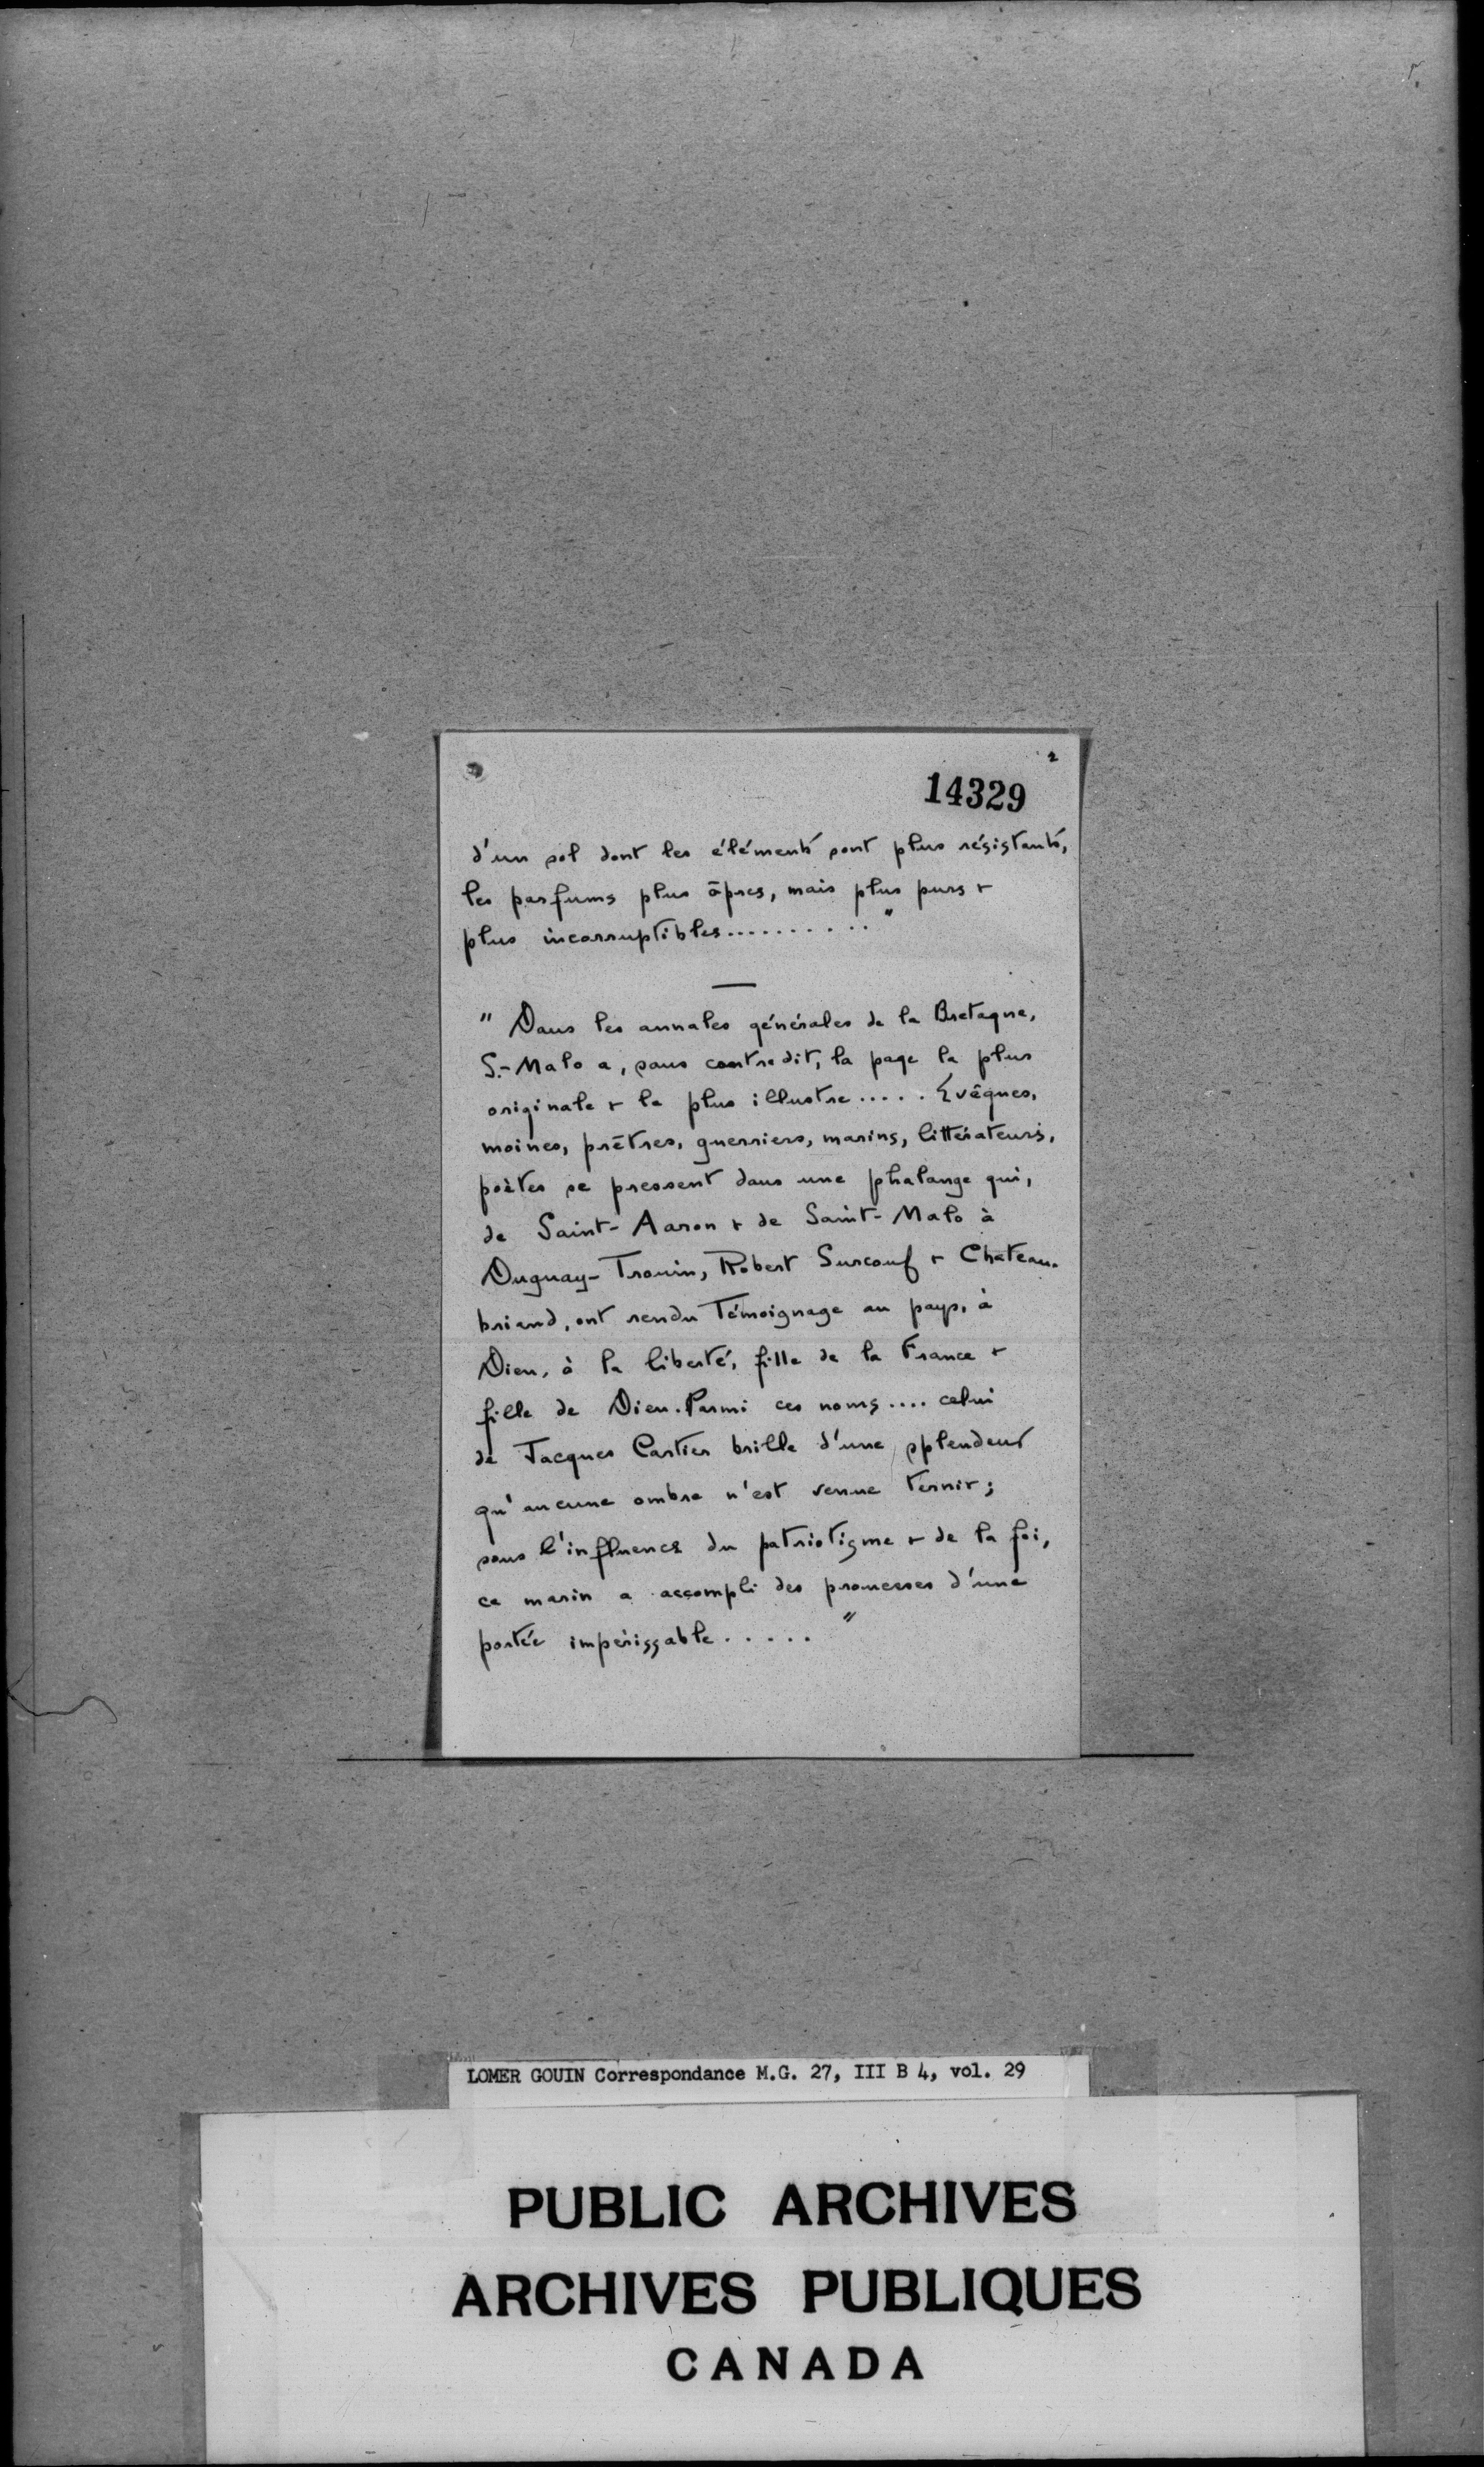 2
14329
d'un sol dont les éléments sont plus résistants,
les parfums plus âpres, mais plus purs +
plus incorruptibles.......... "
" Dans les annales générales de la Bretagne,
S.-Malo a, sans contredit, la page la plus
originale + la plus illustre..... Evêques,
moines, prêtres, guerriers, marins, littérateurs,
poètes se pressent dans une phalange qui,
de Saint-Aaron + de Saint-Malo à
Duguay-Trouin, Robert Surcouf + Chateau-
briand, ont rendu témoignage au pays, à
Dieu, à la liberté, fille de la France +
fille de Dieu. Parmi ces noms.... celui
de Jacques Cartier brille d'une splendeur
qu'aucune ombre n'est venue ternir ;
sous l'influence du patriotisme + de la foi,
ce marin a accompli des promesses d'une
portée impérissable..... "
LOMER GOUIN Correspondance M.G. 27, III B 4, vol. 29
PUBLIC ARCHIVES
ARCHIVES PUBLIQUES
CANADA